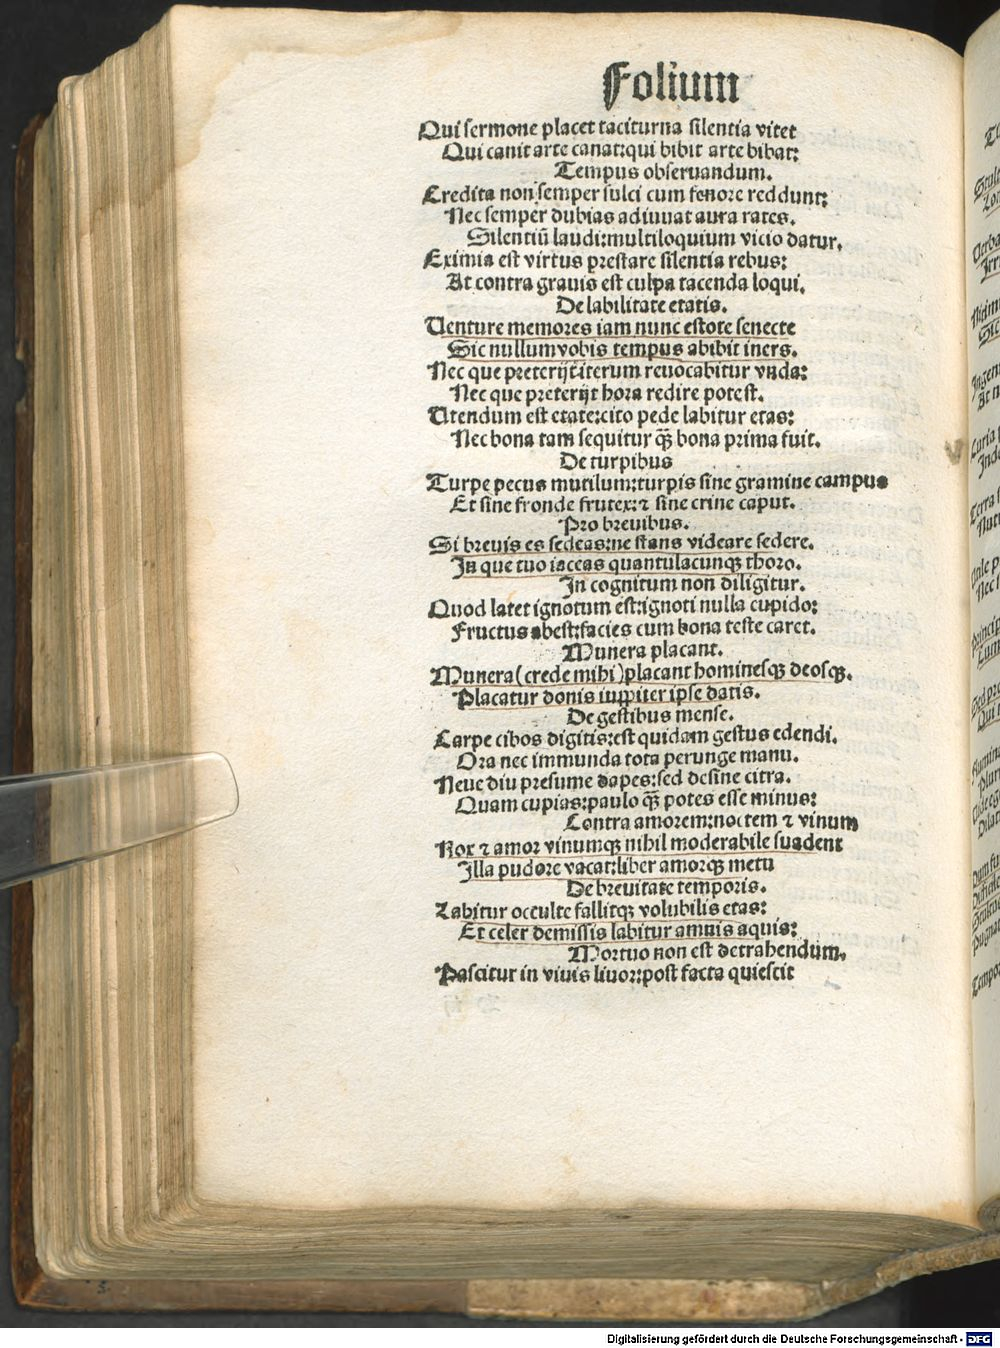 Folium
Qui sermone placet taciturna silentia vitet
Qui canit arte canat:qui bibit arte bibat:
Tempus obseruandum.
Credita non semper sulci cum fenore reddunt:
Nec semper dubias adiuuat aura rates.
Silentiū laudi:multiloquium vicio datur.
Eximia est virtus prestare silentia rebus:
At contra grauis est culpa tacenda loqui.
De labilitate etatis.
Uenture memores iam nunc estote senecte
Sic nullum vobis tempus abibit iners.
Nec que preterijt:iterum reuocabitur vnda:
Nec que preterijt hora redire potest.
Utendum est etate:cito pede labitur etas:
Nec bona tam sequitur q̄ȝ bona prima fuit.
De turpibus
Turpe pecus mutilum:turpis sine gramine campus
Et sine fronde frutex:⁊ sine crine caput.
Pro breuibus.
Si breuis es sedeas:ne stans videare sedere.
In que tuo iaceas quantulacunqȝ thoro.
In cognitum non diligitur.
Quod latet ignotum est:ignoti nulla cupido:
Fructus abest:facies cum bona teste caret.
Munera placant.
Munera(crede mihi)placant hominesqȝ deosqȝ.
Placatur donis iuppiter ipse datis.
De gestibus mense.
Carpe cibos digitis:est quidam gestus edendi.
Ora nec immunda tota perunge manu.
Neue diu presume dapes:sed desine citra.
Quam cupias:paulo q̄ȝ potes esse minus:
Contra amorem:noctem ⁊ vinum
Nox ⁊ amor vinumqȝ nihil moderabile suadent
Illa pudore vacat:liber amorqȝ metu
De breuitate temporis.
Labitur occulte fallitqȝ volubilis etas:
Et celer demissis labitur amnis aquis:
Mortuo non est detrahendum.
Pascitur in viuis liuor:post facta quiescit
Digitalisierung gefördert durch die Deutsche Forschungsgemeinschaft - DFG